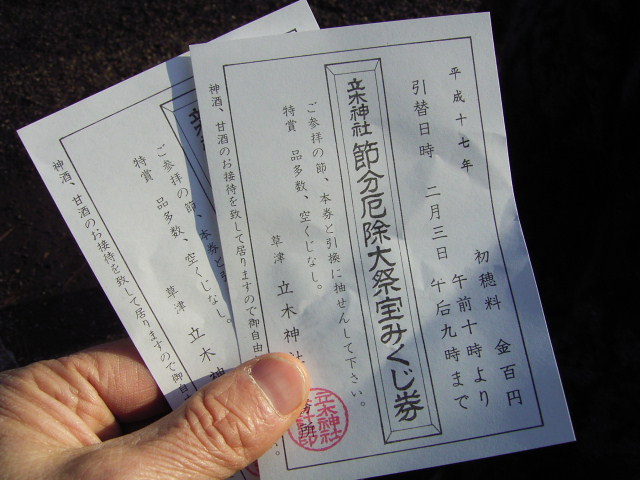 平成十七年
初穂料 金百円
引替日時 二月三日 午前十時より
午后九時まで
立木神社 節分厄除大祭宝みくじ券
ご参拝の節、本券と引換に抽せんして下さい。
特賞 品多数、空くじなし。
草津 立木神社
務所
神酒、甘酒のお接待を致して居りますので御自由
い。
立木神社
立木
ご参拝の節、本券と引
特賞 品多数、空くじなし。
草津 立木神
神酒、甘酒のお接待を致して居りますので御自